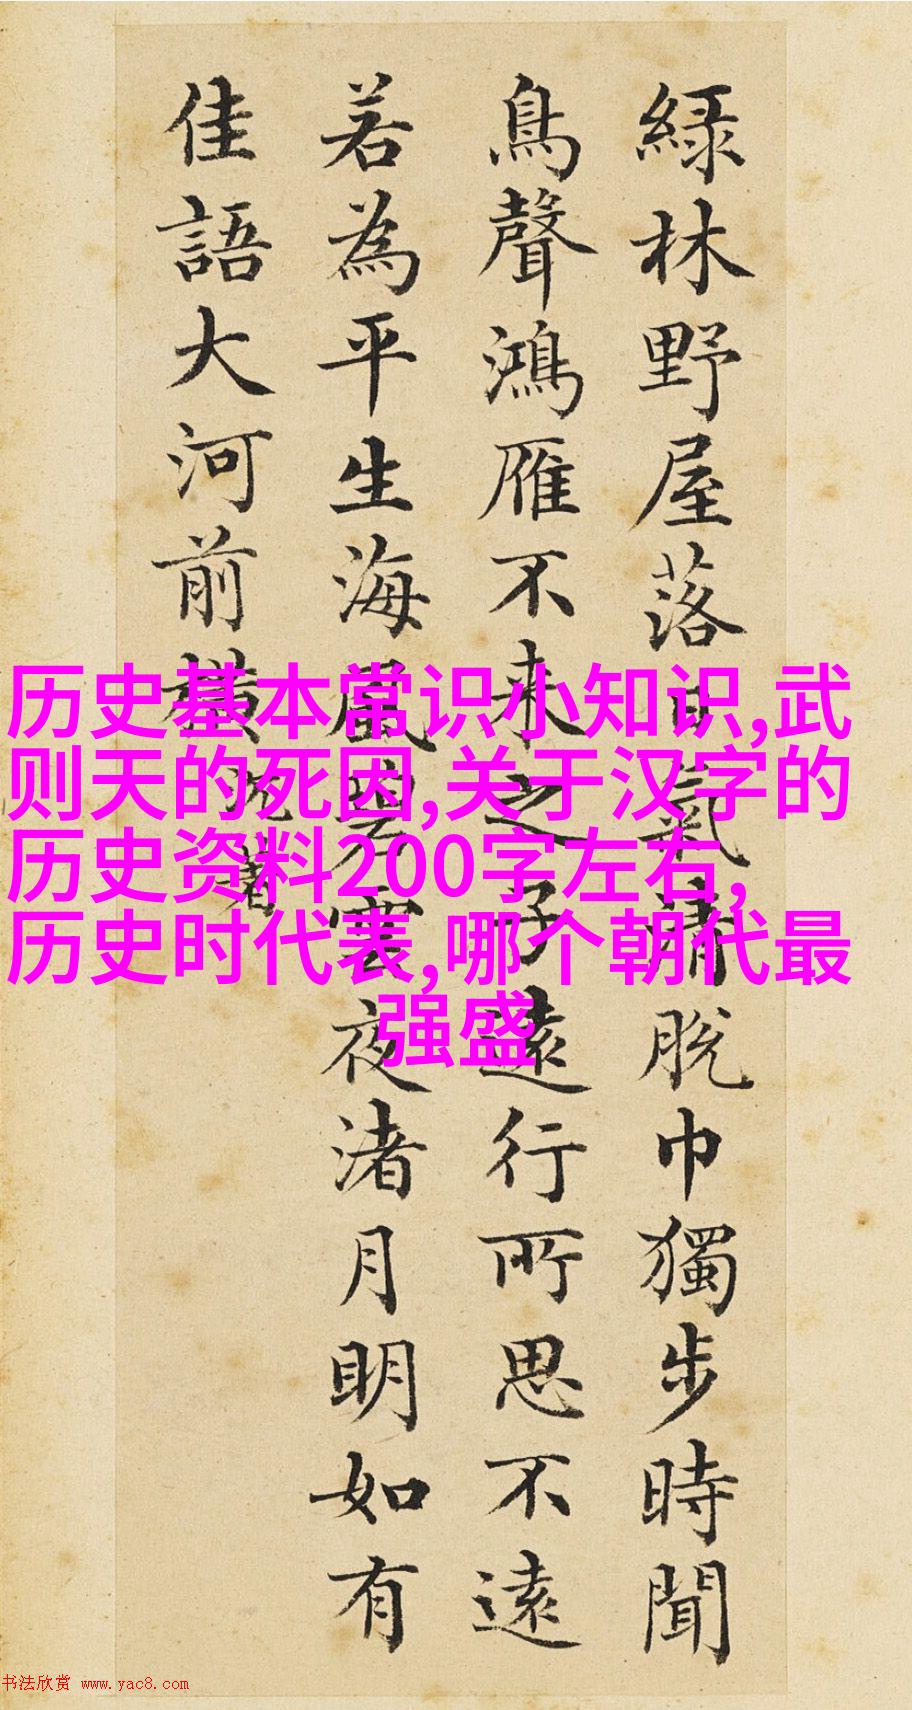 綠林野屋落日氣清脫巾獨步時聞
鳥聲鴻雁不来之子遠行所思不遠
若為平生海風碧雲夜渚月明如有
佳語大河前橫
沈著
历史基本常识小知识,武
则天的死因,关于汉字的
历史资料200字左右,
历史时代表,哪个朝代最
强盛
书法欣赏 www.yac8.com